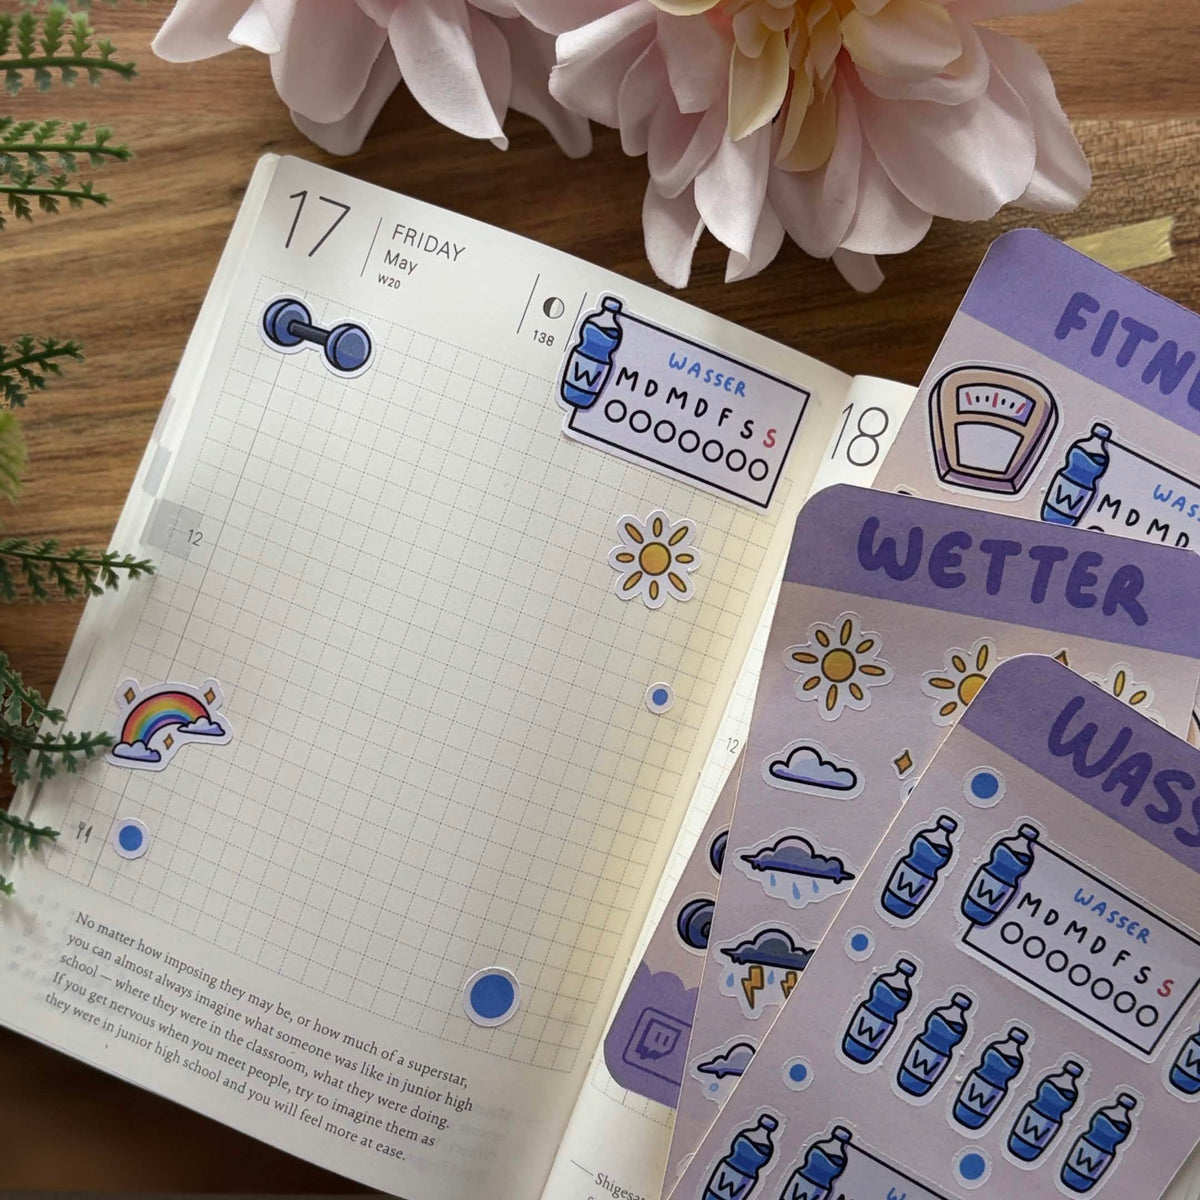 17
FRIDAY
May
W20
138
WASSER
W
M D M D F S S
12
No matter how imposing they may be, or how much of a superstar,
you can almost always imagine what someone was like in junior high
school — where they were in the classroom, what they were doing.
If you get nervous when you meet people, try to imagine them as
they were in junior high school and you will feel more at ease.
18
12
FITN
W
WAS
M D M D
WETTER
WASS
W
W
WASSER
M D M D F S S
W
W
W
W
W
W
W